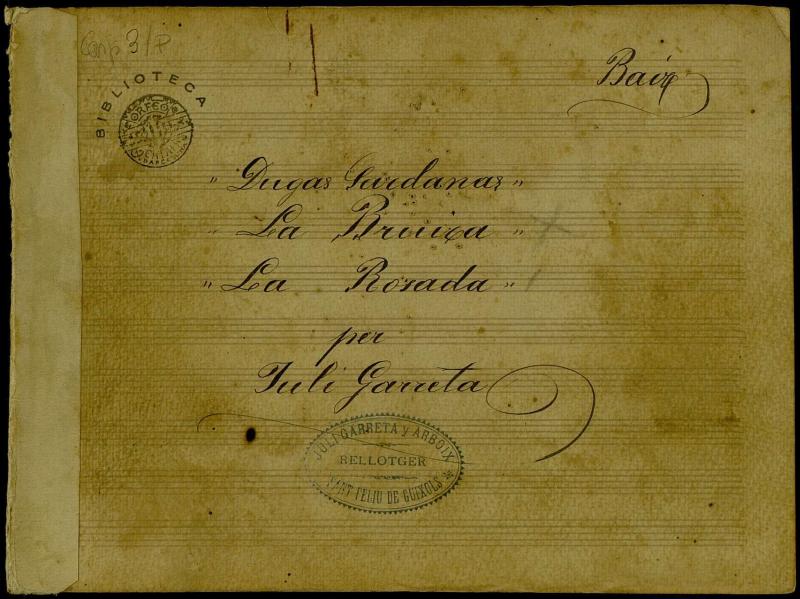 Carp 3/P
Baix
BIBLIOTECA
ORFEÓ
" Dugas Sardanas "
" La Bruixa "
" La Rosada "
per
Juli Garreta
JULI GARRETA y ARBOIX
RELLOTGER
SANT FELIU DE GUIXOLS